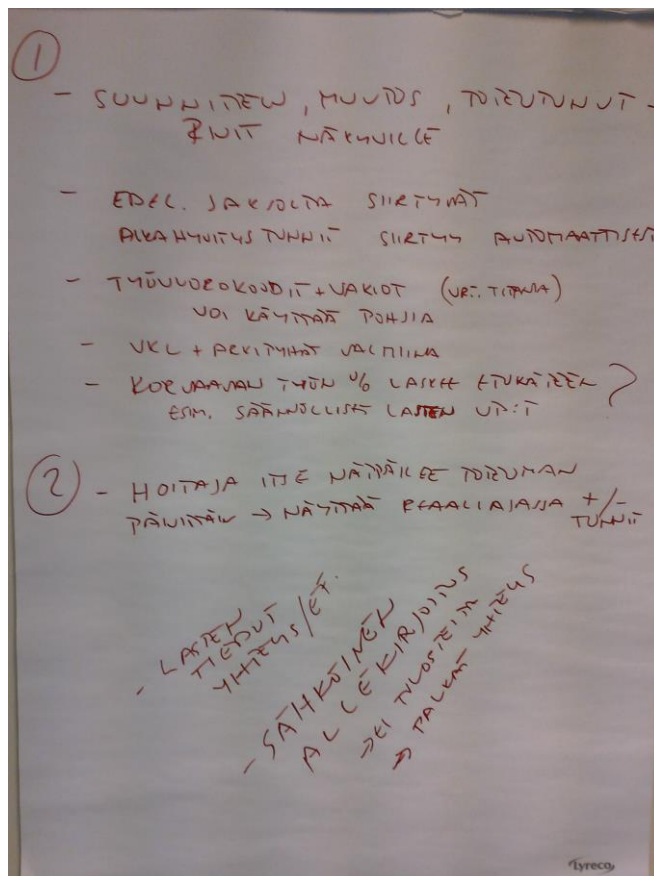 ①
- SUUNNITELTU, MUUTOS, TOTEUTUNUT -
RIVIT NÄKYVILLE
- EDELL. JAKSOLTA SIIRTYVÄT
AIKAHYVITYSTUNNIT SIIRTYY AUTOMAATTISESTI
- TYÖVUOROKOODIT + VAKIOT (VRT. TITANIA)
VOI KÄYTTÄÄ POHJIA
- VKL + ARKIPYHÄT VALMIINA
- KOKOAJAN TYÖN % LASKEE ETUKÄTEEN
ESIM. SÄÄNNÖLLISET LASTEN VP:T
② - HOITAJA ITSE NÄPPÄILEE TOTEUMAN
PÄIVITTÄIN → NÄYTTÄÄ REAALIAJASSA +/-
TUNNIT
- LASTEN
TIEDOT
YHTEYS/ET.
- SÄHKÖINEN
ALLEKIRJOITUS
→ EI TULOSTEITA
→ PALKAT YHTEYS
Lyreco